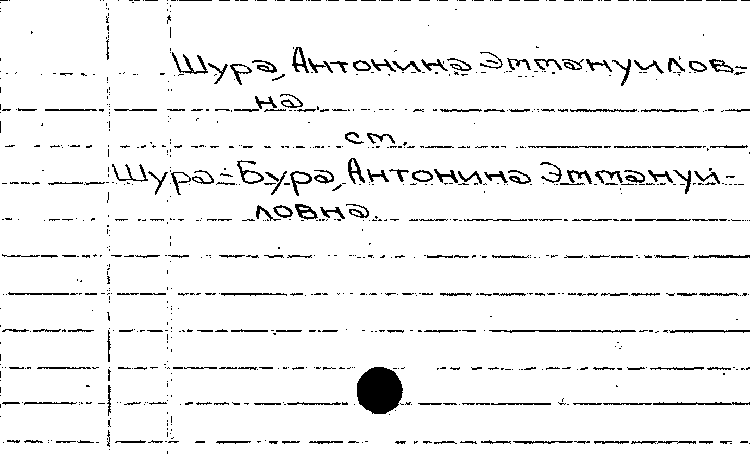 Шура, Антонина Эммануилов-
на.
ст.
Шура-Бура, Антонина Эммануи-
ловна.